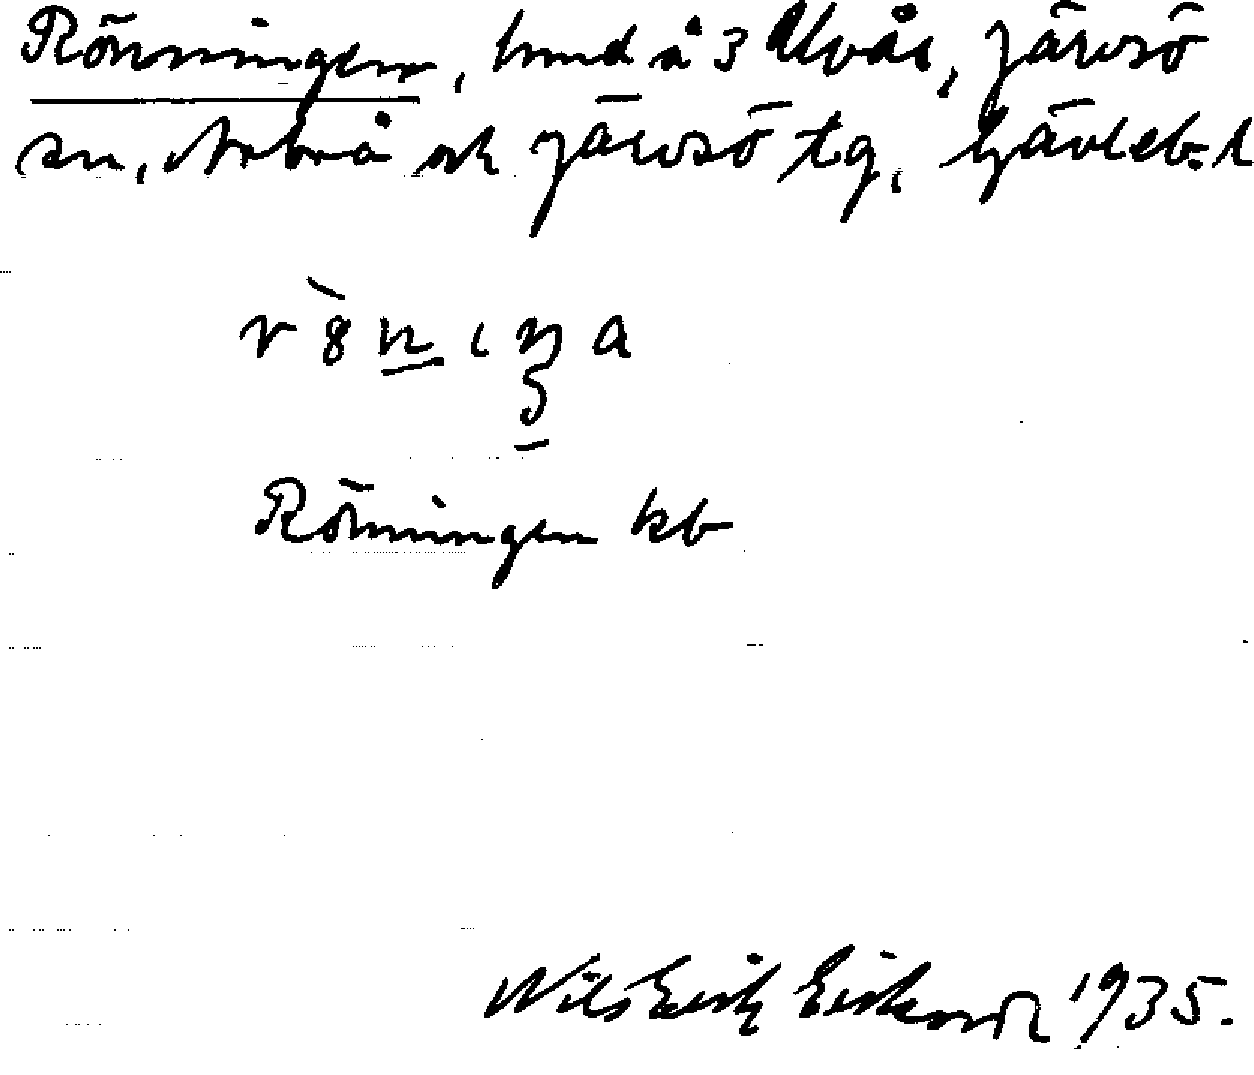 Rönningen, hmd å 3 Alvår, Järvsö
sn, Arbrå och Järvsö tg, Gävleb. l
Rönningen kb
Nils Erik Erikson 1935.